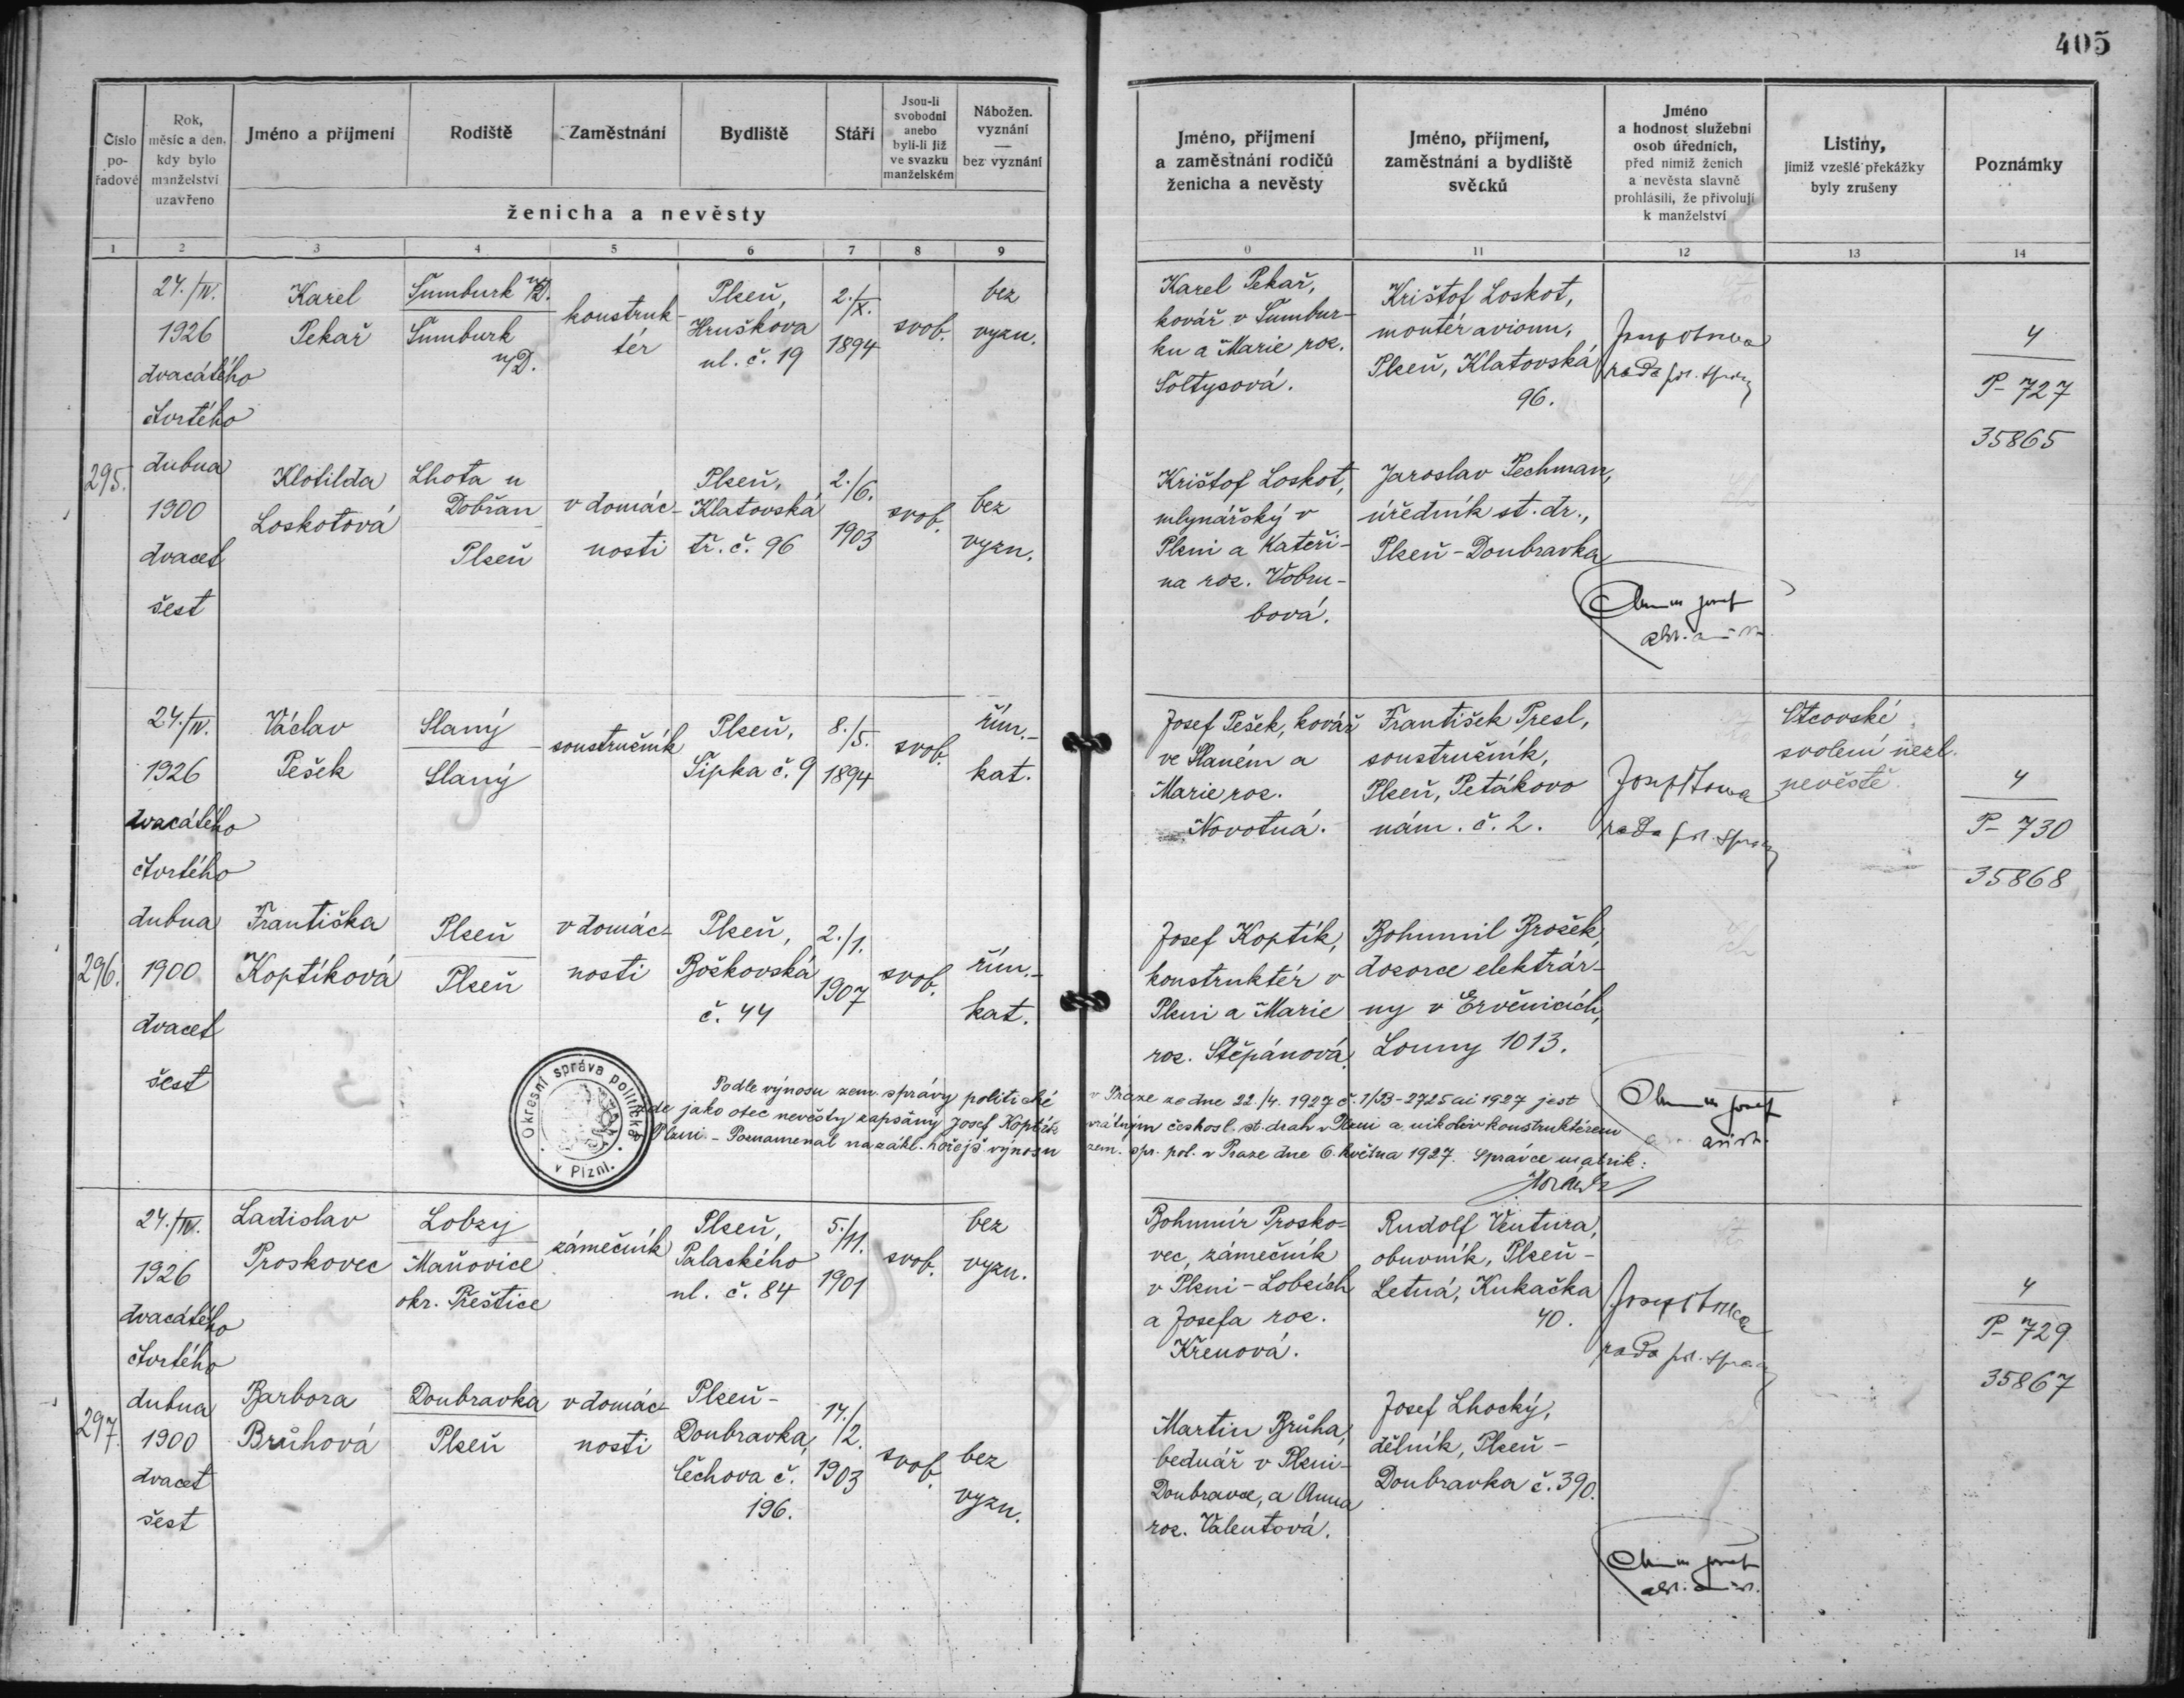 405
Číslo
po-
řadové
Rok,
měsíc a den,
kdy bylo
manželství
uzavřeno
Jméno a příjmení
Rodiště
Zaměstnání
Bydliště
Stáří
Jsou-li
svobodni
anebo
byli-li již
ve svazku
manželském
Nábožen.
vyznání
—
bez vyznání
ženicha a nevěsty
Jméno, příjmení
a zaměstnání rodičů
ženicha a nevěsty
Jméno, příjmení,
zaměstnání a bydliště
svědků
Jméno
a hodnost služební
osob úředních,
před nimiž ženich
a nevěsta slavně
prohlásili, že přivolují
k manželství
Listiny,
jimiž vzešlé překážky
byly zrušeny
Poznámky
1 2 3 4 5 6 7 8 9
0 11 12 13 14
295.
24./IV.
1926
dvacátého
čtvrtého
dubna
1900
dvacet
šest
Karel
Pekař
Šumburk n/D.
Šumburk
n/D.
konstruk-
tér
Plzeň,
Hruškova
ul. č. 19
2./X.
1894
svob.
bez
vyzn.
Karel Pekař,
kovář v Šumbur-
ku a Marie roz.
Šoltysová.
Krištof Loskot,
montér avionu,
Plzeň, Klatovská
96.
rada pol. správy
4
P-727
35865
Klotilda
Loskotová
Lhota u
Dobřan
Plzeň
v domác-
nosti
Plzeň,
Klatovská
tř. č. 96
2./6.
1903
svob.
bez
vyzn.
Krištof Loskot,
mlynářský v
Plzni a Kateři-
na roz. Vobru-
bová.
Jaroslav Pechman,
úředník st. dr.,
Plzeň-Doubravka
296.
24./IV.
1926
dvacátého
čtvrtého
dubna
1900
dvacet
šest
Václav
Pešek
Slaný
Slaný
soustružník
Plzeň,
Šipka č. 9
8./5.
1894
svob.
řím.-
kat.
Josef Pešek, kovář
ve Slaném a
Marie roz.
Novotná.
František Presl,
soustružník,
Plzeň, Petákovo
nám. č. 2.
rada pol. správy
Otcovské
svolení nezl.
nevěstě.
4
P-730
35868
Františka
Koptíková
Plzeň
Plzeň
v domác-
nosti
Plzeň,
Božkovská
č. 44
2./1.
1907
svob.
řím.-
kat.
Josef Koptík,
konstruktér v
Plzni a Marie
roz. Štěpánová.
Bohumil Brožek,
dozorce elektrár-
ny v Ervěnicích,
Louny 1013.
Okresní správa politická
v Plzni.
Podle výnosu zem. správy politické v Praze ze dne 22./4. 1927 č. 1/B-2725 ai 1927 jest
zde jako otec nevěsty zapsaný Josef Koptík vrátným českosl. st. drah v Plzni a nikoliv konstruktérem
v Plzni. - Poznamenal na zákl. hořejš. výnosu zem. spr. pol. v Praze dne 6. května 1927. Správce matrik:
297.
24./IV.
1926
dvacátého
čtvrtého
dubna
1900
dvacet
šest
Ladislav
Proskovec
Lobzy
Maňovice
okr. Přeštice
zámečník
Plzeň,
Palackého
ul. č. 84
5./11.
1901
svob.
bez
vyzn.
Bohumír Prosko-
vec, zámečník
v Plzni-Lobzích
a Josefa roz.
Křenová.
Rudolf Ventura,
obuvník, Plzeň-
Letná, Kukačka
40.
rada pol. správy
4
P-729
35867
Barbora
Brůhová
Doubravka
Plzeň
v domác-
nosti
Plzeň-
Doubravka,
Čechova č.
196.
14./
/2.
1903
svob.
bez
vyzn.
Martin Brůha,
bednář v Plzni-
Doubravce, a Anna
roz. Valentová.
Josef Lhocký,
dělník, Plzeň-
Doubravka č. 390.